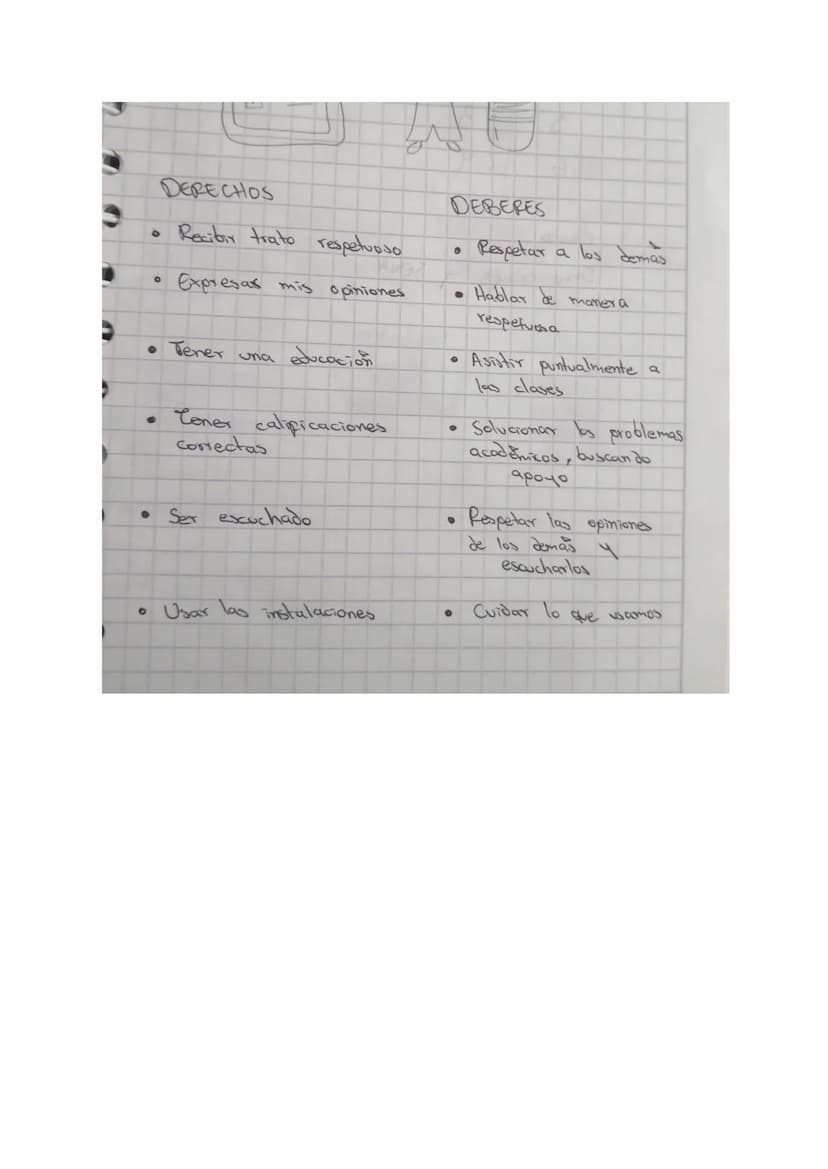 DERECHOS
• Recibir trato respetuoso
• Expresas mis opiniones
• Tener una educación
• Tener calificaciones
correctas
• Ser escuchado
• Usar las instalaciones
DEBERES
• Respetar a los demás
• Hablar de manera
respetuosa
• Asistir puntualmente a
las clases
• Solucionar los problemas
académicos, buscando
apoyo
• Respetar las opiniones
de los demás y
escucharlos
• Cuidar lo que usamos